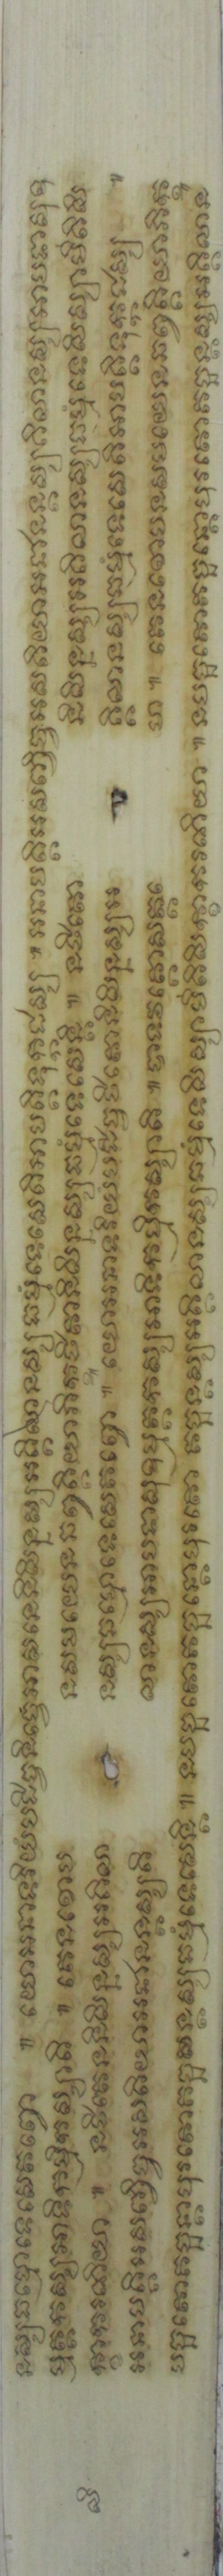 នស្សធម្មោទេសេតព្វោ ៕ យោអនាទរិយំបដិច្ចនិច្ចេអាសនេនិសិន្នស្សអគ្គិលានស្សធម្មំទេសេតិអាបត្តិទុក្កដស្ស ៕ អនាបត្តិអសញ្ចិច្ចអសតិយាអជានន្តស្សគិលានស្សអាបទាសុឧ
ម្មត្តកស្សអាទិកម្មិកស្សាតិ ៕ តេនខោប នសមយេនឆព្វគ្គិយាភិក្ខូឋិតានិសិន្នស្សធម្មំទេសេន្តិ ៕ នឋិតោ និសិន្នស្សអគិលានស្សធម្មំទេសិស្សាមីតិសិ
ក្ខាករណីយា ៕ នឋិតេននិសិន្នស្សអគិលា នស្សធម្មោទេសេតព្វោ ៕ យោអនាទរិយំបដិច្ចឋិតោនិសិន្នស្សអ គ្គិលានស្សធម្មំទេសេតិអាបត្តិទុក្កដស្ស ៕
អនាបត្តិអសញ្ចិច្ចអសតិយាអជានន្តស្សគិ លានស្សអាបទាសុឧម្មត្តកស្សអាទិកម្មិកស្សាតិ ៕ បាទវគ្គោសត្តមេ ហ ៕ តេនខោបនសមយេនឆព្វគ្គិយាភិក្ខូ
បច្ឆតោគច្ឆន្តាបុរតោគច្ឆន្តស្សធម្មំទេសេន្តិ ៕ នបច្ឆតោគច្ឆន្តោបុរតោ គច្ឆន្តស្សអគ្គិលានស្សធម្មំទេសិស្សាមីតិសិក្ខាករណីយា ៕ នបច្ឆតោគច្ឆន្តោបុរតោគច្ឆន្តស្សអគ្គិលាន